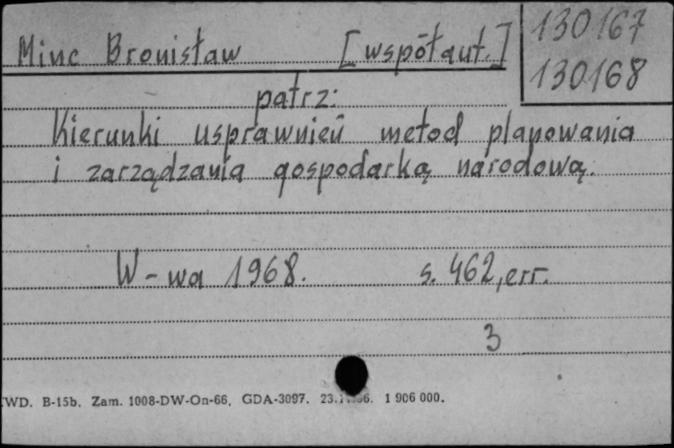 Minc Bronisław [współaut.]
130167
130168
patrz:
Kierunki usprawnień metod planowania
i zarządzania gospodarką narodową.
W-wa 1968. s. 462, err.
3
WD. B-15b. Zam. 1008-DW-On-66. GDA-3097. 1 906 000.